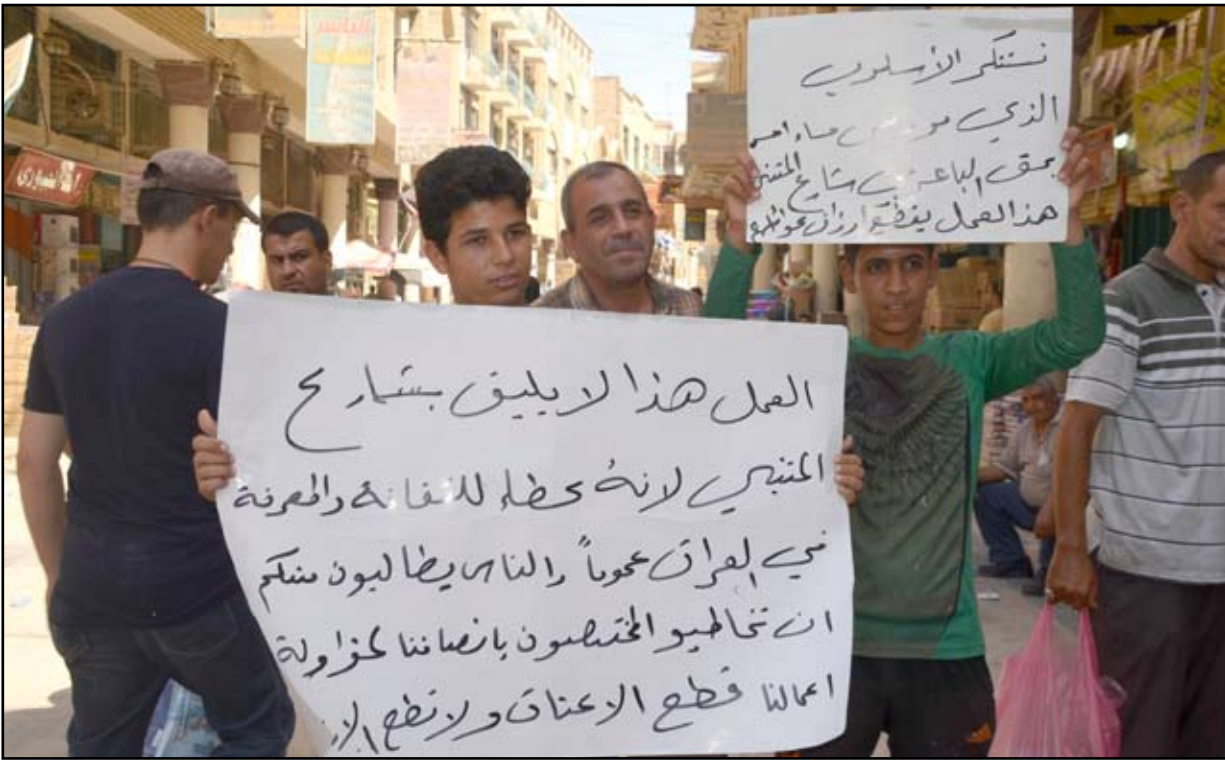 نستنكر الأسلوب
الذي مساء امس
بحق الباعة في شارع المتنبي
هذا العمل ارزاق عوائلهم
العمل هذا لا يليق بشارع
المتنبي لانهُ عطاء للثقافة والمعرفة
في العراق عموماً والناس يطالبون منكم
ان تخاطبو المختصون بانصافنا لمزاولة
اعمالنا قطع الاعناق ولا قطع